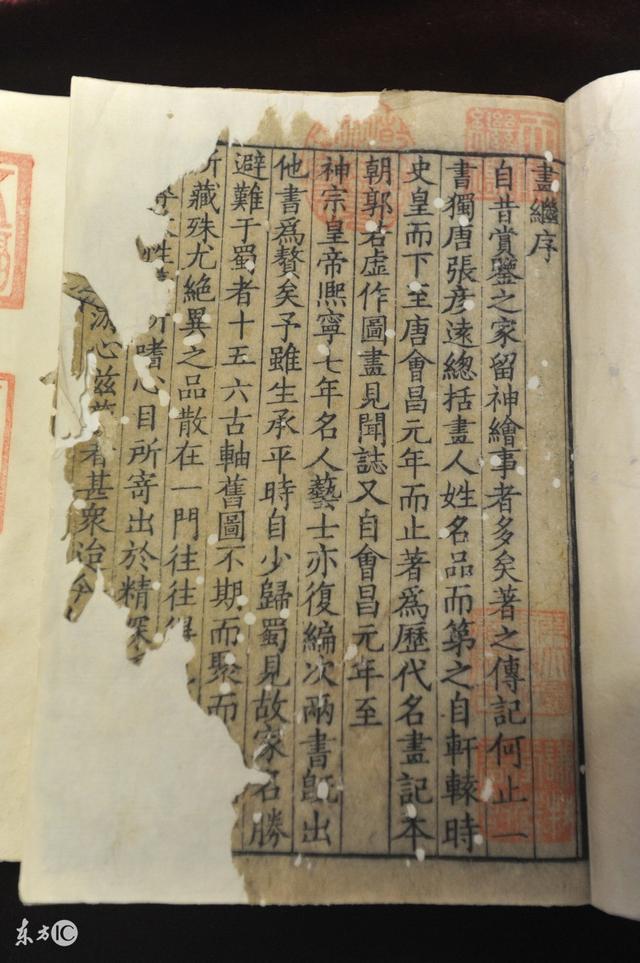 畫繼序
自昔賞鑒之家留神繪事者多矣著之傳記何止一
書獨唐張彥遠總括畫人姓名品而第之自軒轅時
史皇而下至唐會昌元年而止著爲歷代名畫記本
朝郭若虛作圖畫見聞誌又自會昌元年至
神宗皇帝熈寧七年名人藝士亦復編次兩書旣出
他書爲贅矣予雖生承平時自少歸蜀見故家名勝
避難于蜀者十五六古軸舊圖不期而聚而
所藏殊尤絕異之品散在一門往往得
性 所嗜心目所寄出於精深
游心兹 者甚衆迨今
东方IC